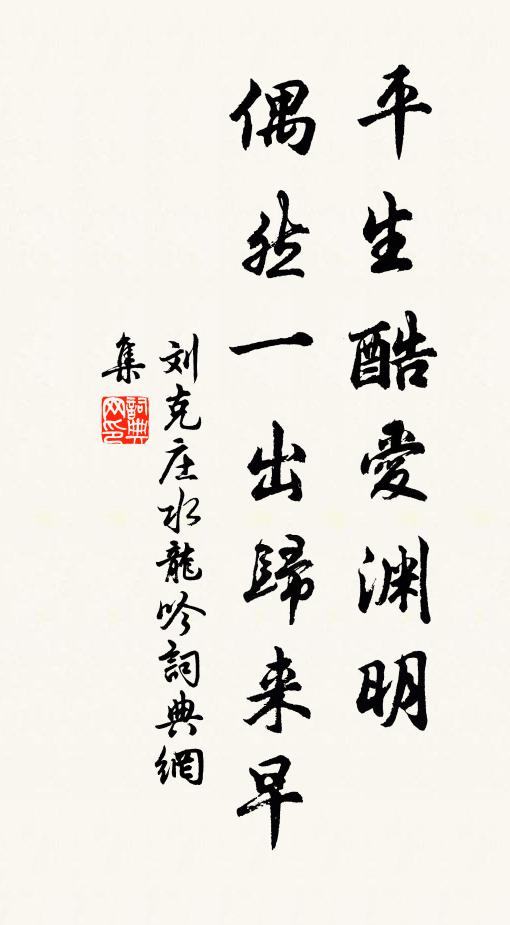 平生酷愛渊明
偶然一出歸来早
刘克庄水龍吟詞典網
集
詞典网印